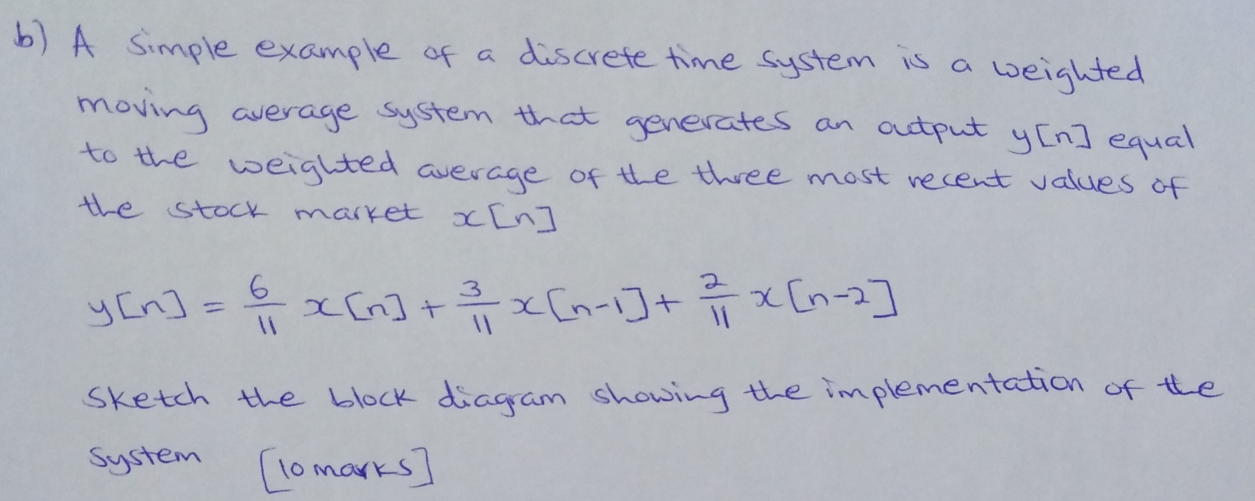 b) A simple example of a discrete time system is a weighted
moving average system that generates an output y[n] equal
to the weighted average of the three most recent values of
the stock market x[n]
y[n] = 6/11 x[n] + 3/11 x[n-1] + 2/11 x[n-2]
Sketch the block diagram showing the implementation of the
system [10 marks]